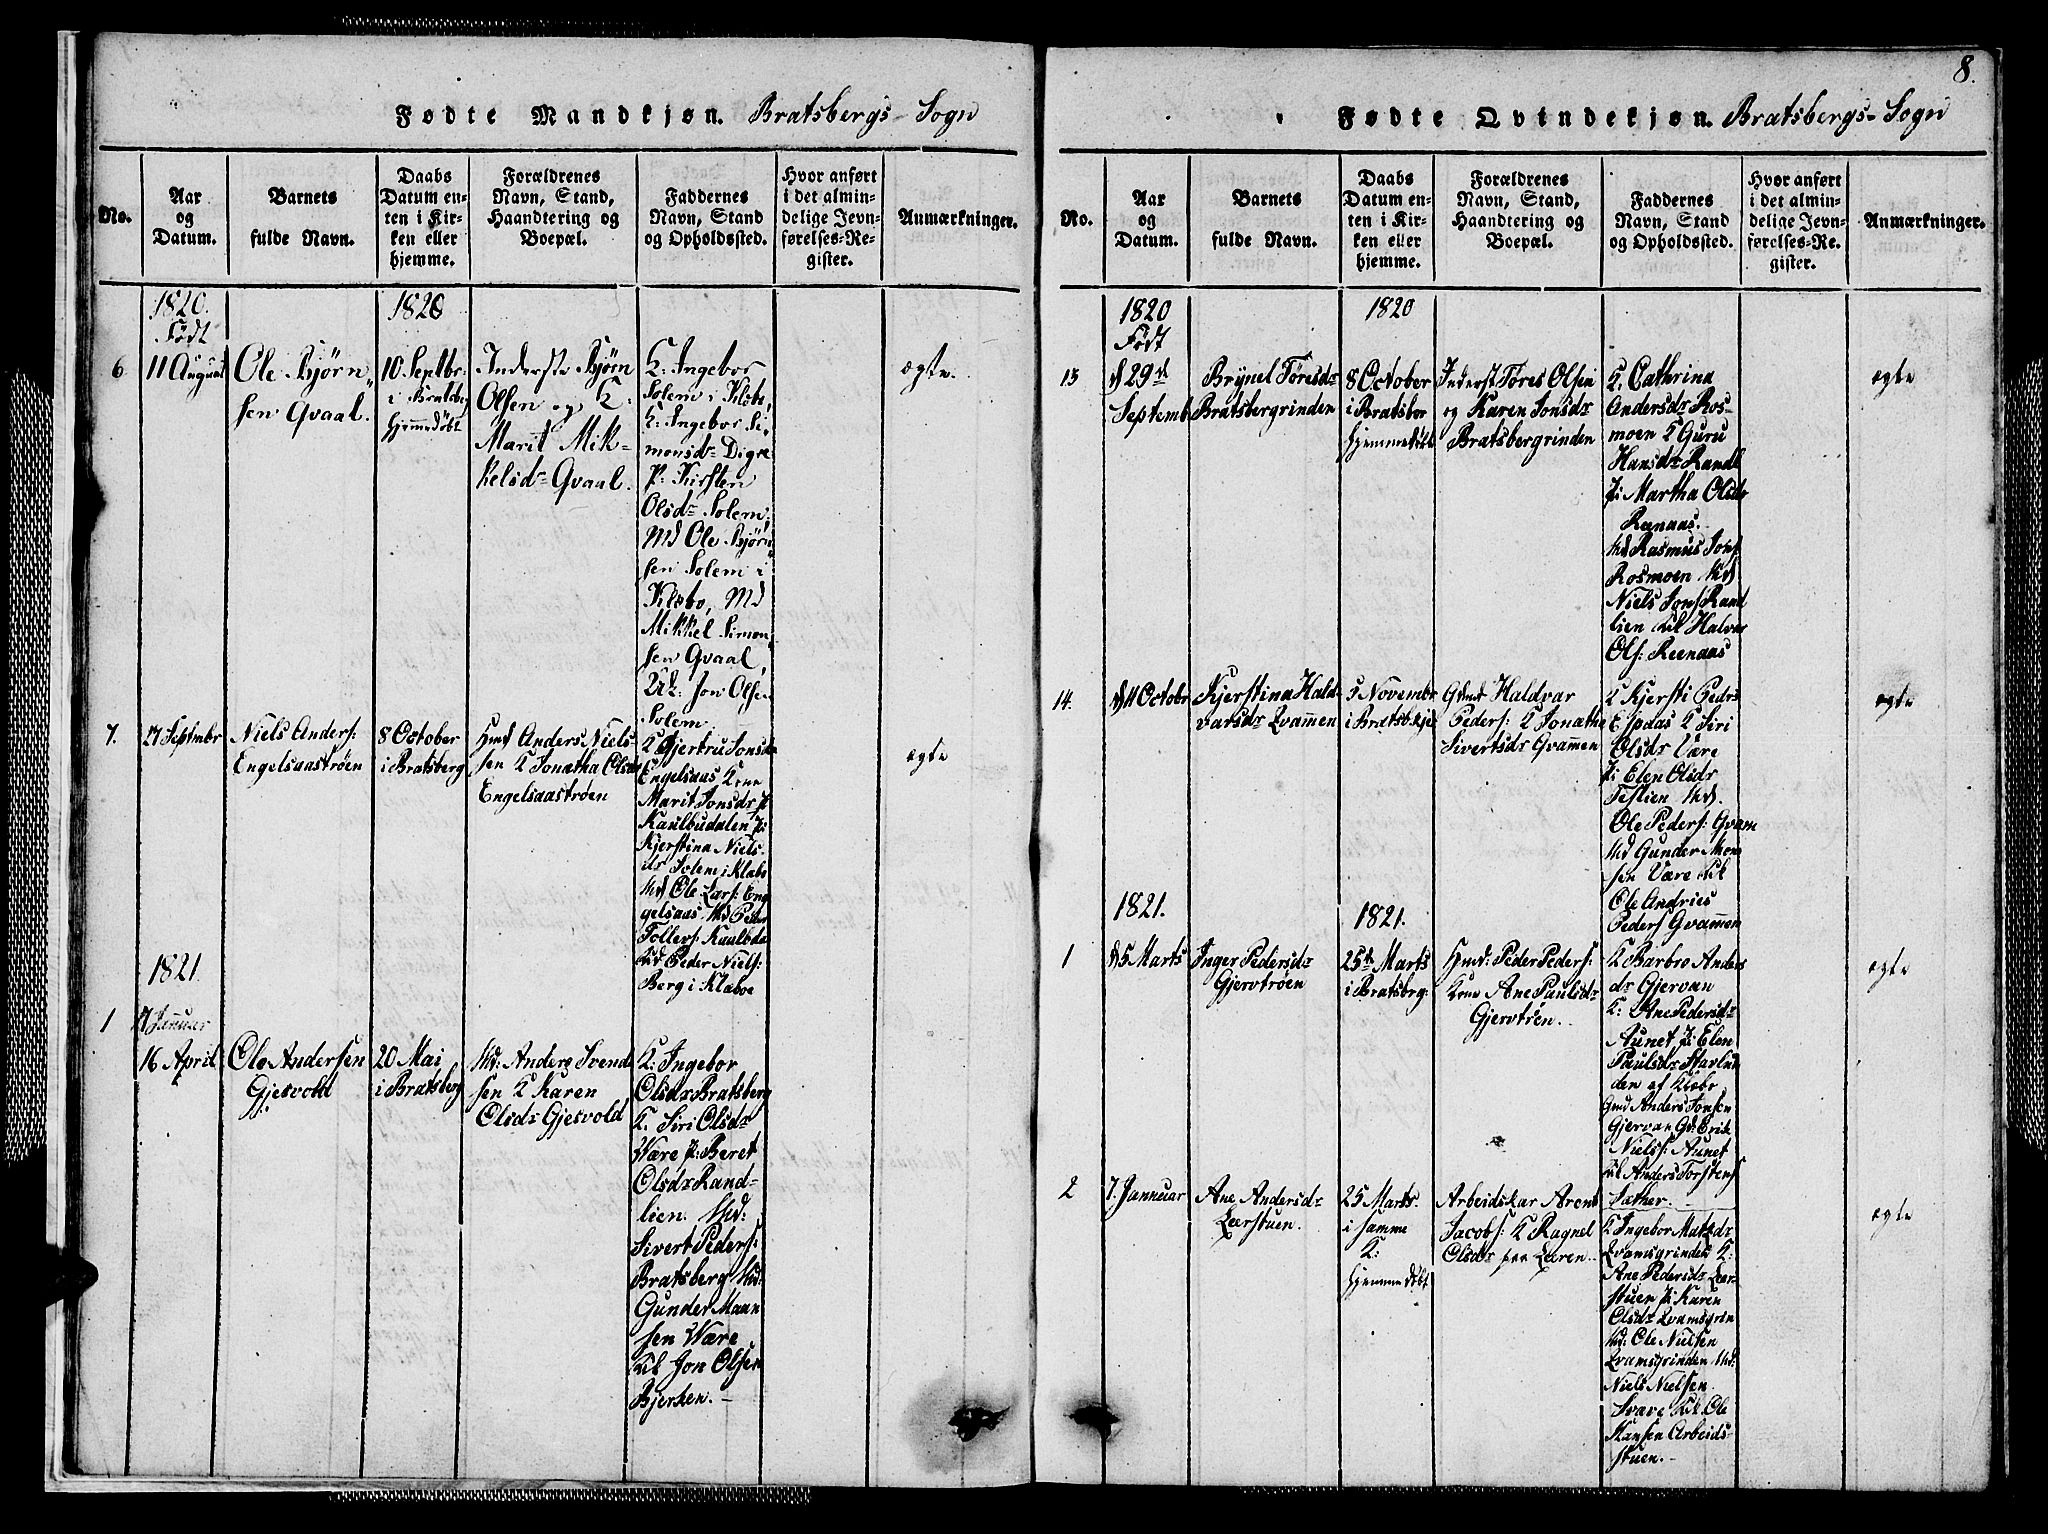 8.
Fødte Mandkjøn. Bratsbergs Sogn
No.
Aar
og
Datum.
Barnets
fulde Navn.
Daabs
Datum en-
ten i Kir-
ken eller
hjemme.
Forældrenes
Navn, Stand,
Haandtering og
Boepæl.
Faddernes
Navn, Stand
og Opholdssted.
Hvor anført
i det almin-
delige Jevn-
førelses-Re-
gister.
Anmærkninger.
1820.
Født
1820
6
11 August
Ole Bjørn
sen Qvaal.
10. Septbr.
i Bratsberg
hjemmedøbt
Inderste Bjørn
Olsen og K.
Marit Mik-
kelsdr Qvaal.
K: Ingebor
Solem i Klæbo,
K: Ingebor Si-
monsdr Digre
P: Kirsten
Olsdr Solem,
Md Ole Bjørn
sen Solem i
Klæbo, Md
Mikkel Simon
sen Qvaal,
Uk: Jon Olsen
Solem
ægte.
7.
27 Septmbr
Niels Anders:
Engelsaastrøen
8 October
i Bratsberg
Hmd Anders Niels-
sen K Jonatha Olsdr
Engelsaastrøen
K Gjertru Jonsdr
Engelsaas Kone
Marit Jonsdr
Kaulbudalen P:
Kjerstina Niels-
dr Solem i Klæbo
Md Ole Lars: Eng
gelsaas Md Peder
Tollefs: Kaulbda
Uk Peder Niels:
Berg i Klæboe
ægte
1821.
1
17 Januar
16 April
Ole Andersen
Gjesvold
20 Mai
i Bratsberg
Md: Anders Svend
sen K Karen
Olsdr Gjesvold
K: Ingebor
Olsdr Bratsberg
K. Siri Olsdr
Være P: Beret
Olsdr Rand-
lien. Md:
Sivert Peders:
Bratsberg Md:
Gunder Maan
sen Være
Uk Jon Olsen
Bjerken. –
Fødte Qvindekjøn. Bratsbergs- Sogn
No.
Aar
og
Datum.
Barnets
fulde Navn.
Daabs
Datum en-
ten i Kir-
ken eller
hjemme.
Forældrenes
Navn, Stand,
Haandtering og
Boepæl.
Faddernes
Navn, Stand
og Opholdssted.
Hvor anført
i det almin-
delige Jevn-
førelses-Re-
gister.
Anmærkninger.
1820
Født
1820
13
d 29d
Septemb
Brynel Tøresdr
Bratsbergrinden
8 October
i Bratsber
hjemmedøbt
Inderst Tøres Olsen
og Karen Jonsdr
Bratsbergrinden
K. Cathrina
Andersdr Ros-
moen K Guru
Hansdr Randl
P: Martha Olsdr
Reenaas.
Md Rasmus Jons
Rosmoen Md
Niels Jons Rand
lien Uk Halvor
Ols: Reenaas
ægte
14.
d 11 Octobr
Kjerstina Hald-
varsdr Qvammen
5 Novembr
i Bratsb
Gmd Haldvar
Peders: K Jonatha
Sivertsdr Qvammen
K Kjersti Pedrs
Espaas K Siri
Olsdr Være
P: Elen Olsdr
Teslien Md.
Ole Peders: Qvam
Md Gunder Mon
sen Være Uk
Ole Andries
Peders Qvammen
ægte
1821.
1821.
1
d 5 Marts
Inger Pedersdr
Gjervtrøen
25de Marts
i Bratsberg:
Hmd: Peder Peders:
Kone Ane Paulsdr
Gjervtrøen.
K Barbro Anders
dr Gjervan
K: Ane Pedersdr
Aunet P: Elen
Paulsdr
den af Klæbo
Gmd Anders Jonsen
Gjervan Gd: Erik
Niels: Aunet
Uk Anders Torstens
Sæther.
ægte
2
7. Jannuar
Ane Andersdr
Leerstuen.
25 Marts.
i samme
K:
hjemmedøbt
Arbeidskar Arent
Jacobs: K Ragnel
Olsdr paa Leeren.
K Ingebor Matsdr
Qvamsgrinden K:
Ane Pedersdr Leer-
stuen P: Karen
Olsdr Qvamsgrin
Md: Ole Nielsen
Qvamsgrinden Md:
Niels Nielsen
Svare Uk Ole
Hansen Arbeids-
stuen. –
ægte